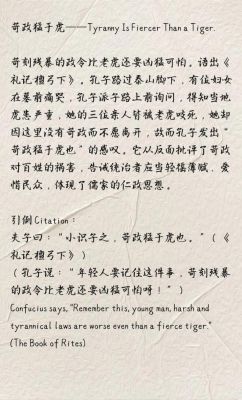 苛政猛于虎——Tyranny Is Fiercer Than a Tiger.
苛刻残暴的政令比老虎还要凶猛可怕。语出《
礼记檀弓下》。孔子路过泰山脚下，有位妇女
在墓前痛哭，孔子派子路上前询问，得知当地
虎患严重，她的三位亲人皆被老虎咬死，她却
因这里没有苛政而不愿离开，故而孔子发出“
苛政猛于虎也”的感叹。它从反面批评了苛政
对百姓的祸害，告诫统治者应当轻徭薄赋、爱
惜民众，体现了儒家的仁政思想。
引例 Citation：
夫子曰：“小识子之，苛政猛于虎也。”（《
礼记檀弓下》）
（孔子说：“年轻人要记住这件事，苛刻残暴
的政令比老虎还要凶猛可怕呀！”）
Confucius says, "Remember this, young man, harsh and
tyrannical laws are worse even than a fierce tiger."
(The Book of Rites)